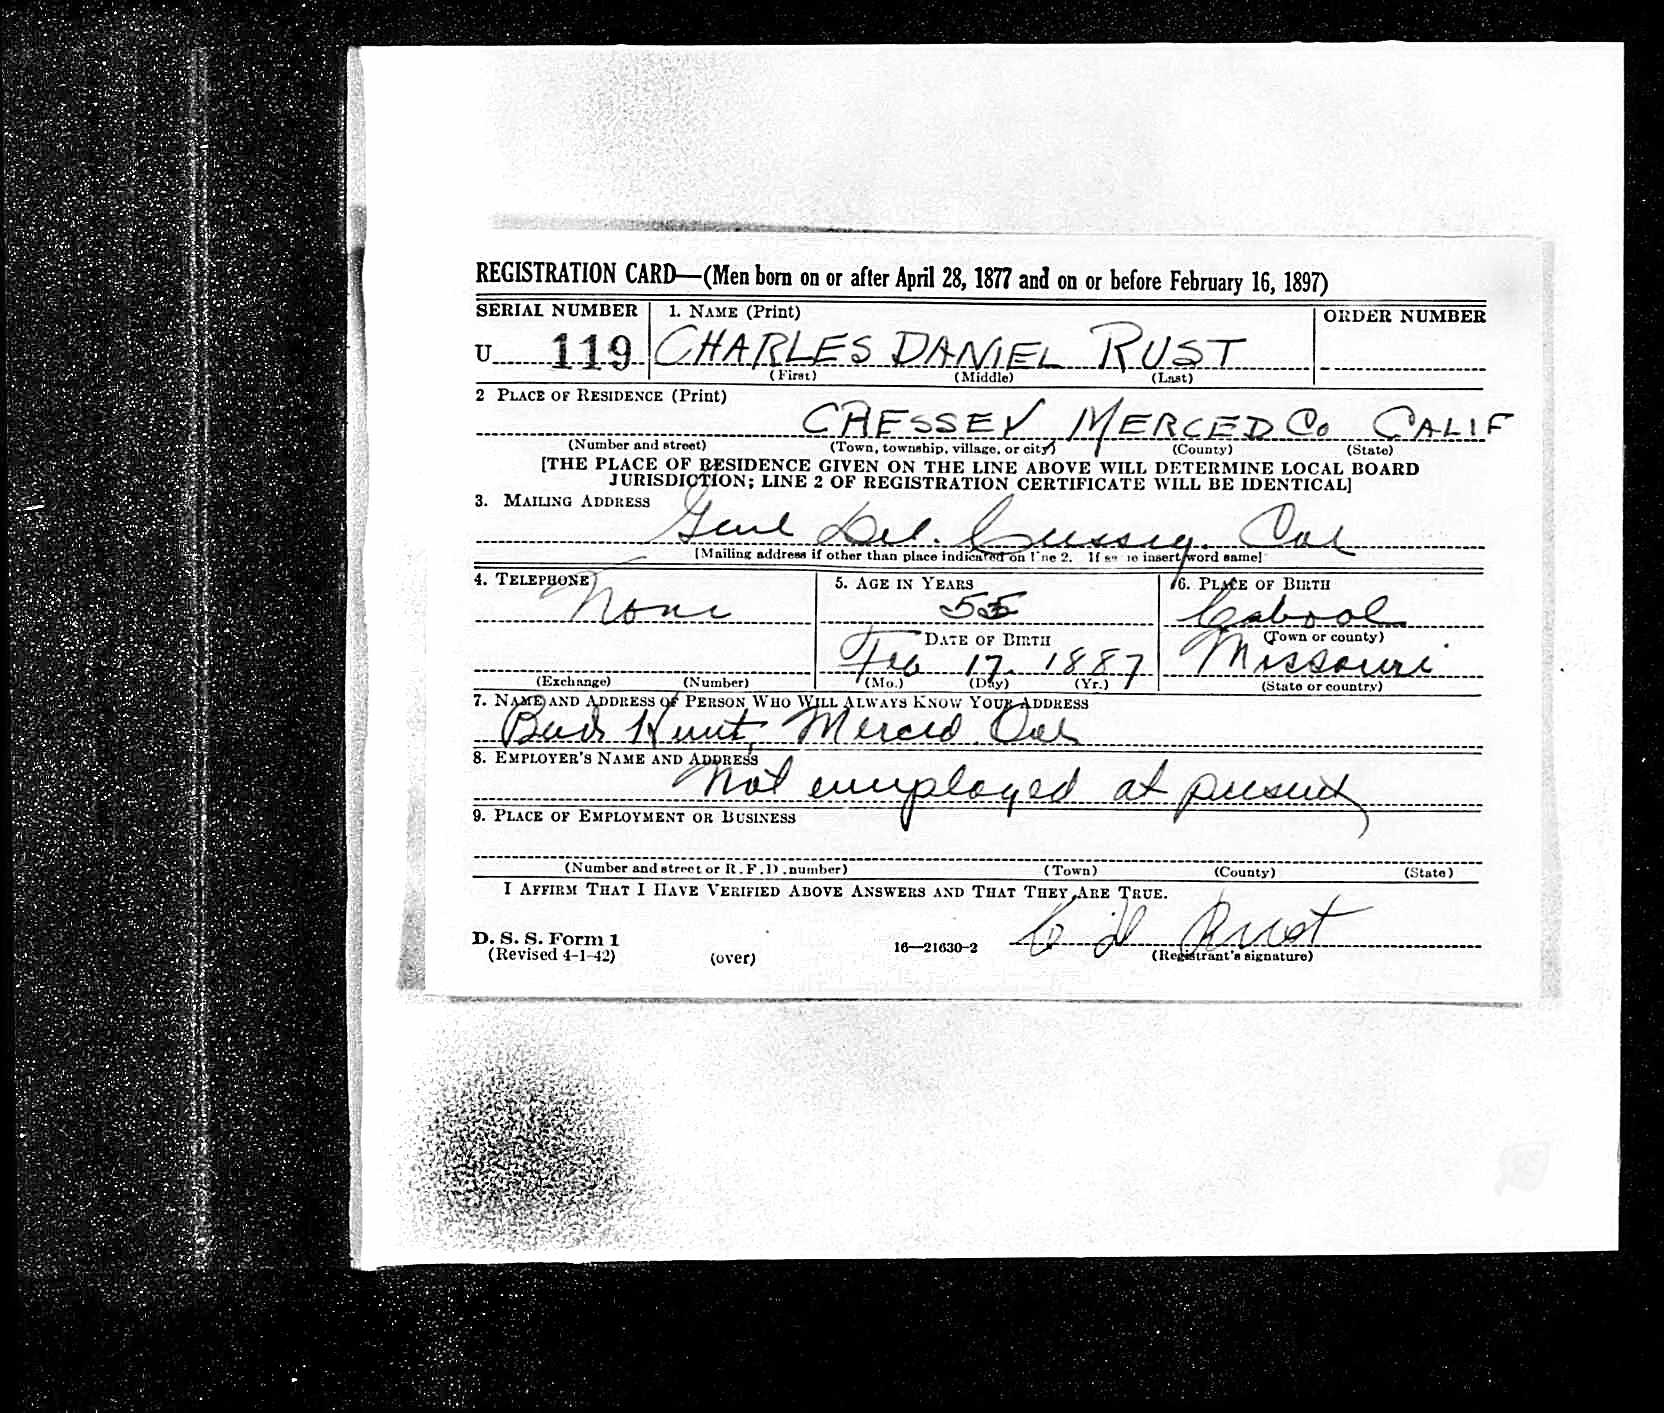 REGISTRATION CARD—(Men born on or after April 28, 1877 and on or before February 16, 1897)
SERIAL NUMBER 1. NAME (Print) ORDER NUMBER
U 119 CHARLES DANIEL RUST
(First) (Middle) (Last)
2 PLACE OF RESIDENCE (Print)
CRESSEY MERCED CO CALIF
(Number and street) (Town, township, village, or city) (County) (State)
[THE PLACE OF RESIDENCE GIVEN ON THE LINE ABOVE WILL DETERMINE LOCAL BOARD
JURISDICTION; LINE 2 OF REGISTRATION CERTIFICATE WILL BE IDENTICAL]
3. MAILING ADDRESS
Genl Del. Cressey. Cal
[Mailing address if other than place indicated on line 2. If same insert word same]
4. TELEPHONE 5. AGE IN YEARS 6. PLACE OF BIRTH
None 55 Cabool
DATE OF BIRTH (Town or county)
Feb 17. 1887 Missouri
(Exchange) (Number) (Mo.) (Day) (Yr.) (State or country)
7. NAME AND ADDRESS OF PERSON WHO WILL ALWAYS KNOW YOUR ADDRESS
Bud Hunt, Merced Cal
8. EMPLOYER'S NAME AND ADDRESS
Not employed at present
9. PLACE OF EMPLOYMENT OR BUSINESS
(Number and street or R. F. D. number) (Town) (County) (State)
I AFFIRM THAT I HAVE VERIFIED ABOVE ANSWERS AND THAT THEY ARE TRUE.
D. S. S. Form 1
(Revised 4-1-42) (over) 16—21630-2 C D Rust
(Registrant's signature)